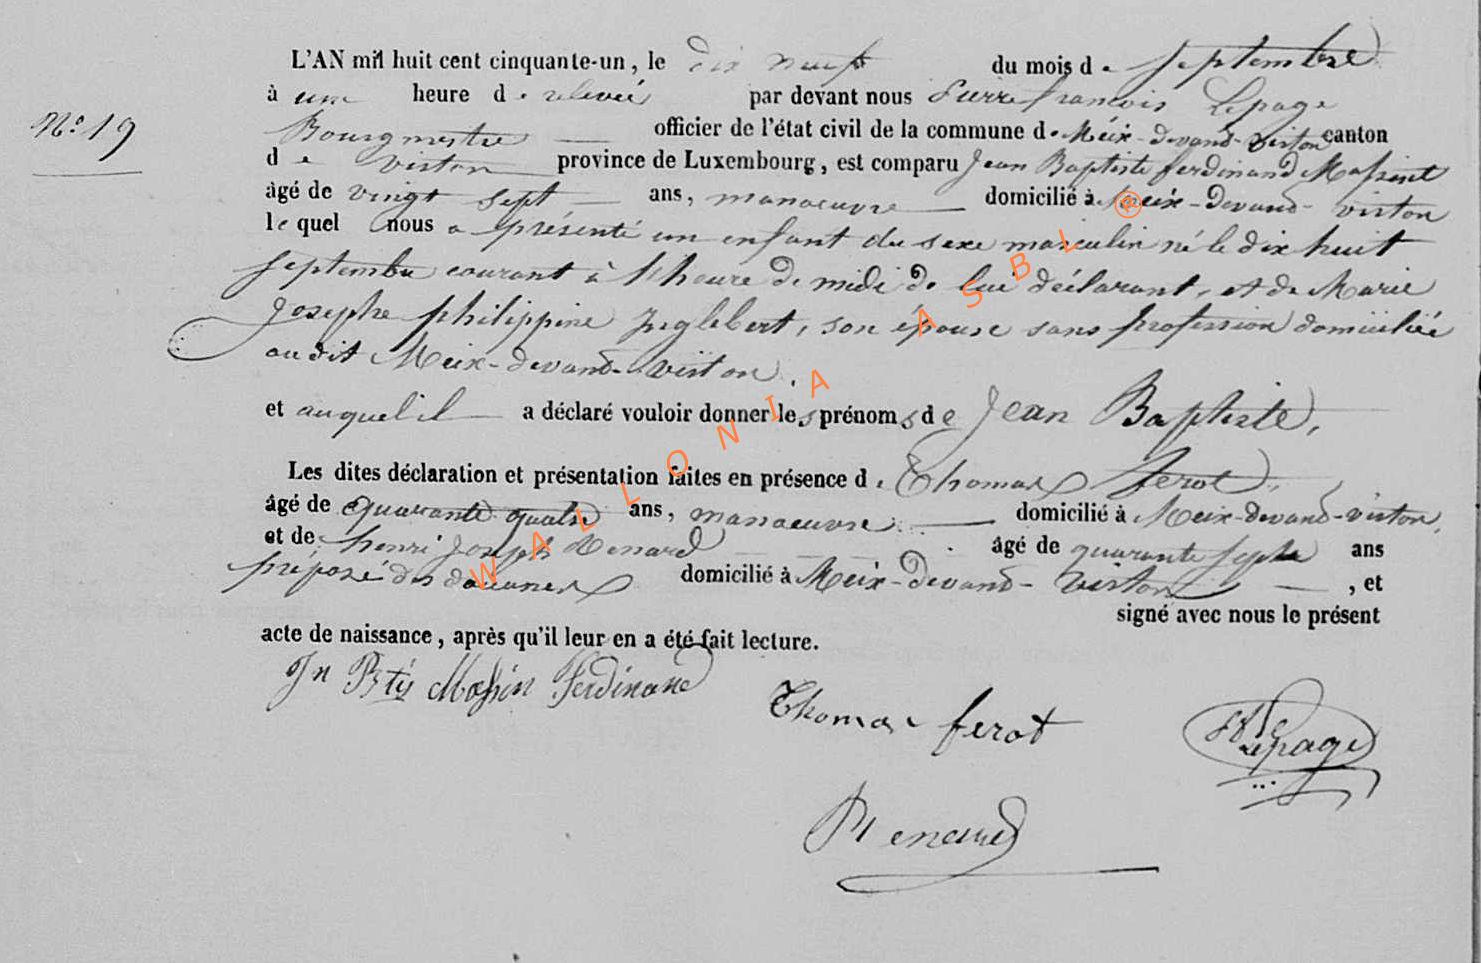 N.° 19
L'AN mil huit cent cinquante-un, le dix neuf du mois de septembre
à une heure de relevée par devant nous Pierre francois Lepage
Bourgmestre officier de l'état civil de la commune de Meix-devant-virton canton
de virton province de Luxembourg, est comparu Jean Baptiste ferdinand Massinet
âgé de vingt sept ans, manoeuvre domicilié à Meix-devant-virton
lequel nous a présenté un enfant du sexe masculin né le dix huit
septembre courant à l'heure de midi de lui déclarant, et de Marie
Josephe philippine Inglebert, son épouse sans profession domiciliée
au dit Meix-devant-virton.
et auquel il a déclaré vouloir donner les prénoms de Jean Baptiste,
Les dites déclaration et présentation faites en présence de Thomas ferot,
âgé de quarante quatre ans, manoeuvre domicilié à Meix-devant-virton,
et de henri Joseph Renard âgé de quarante sept ans
préposé des douanes domicilié à Meix-devant-virton, et
signé avec nous le présent
acte de naissance, après qu'il leur en a été fait lecture.
Jn Bte Massin Ferdinand
Thomas ferot
Lepage
Renard
WALLONIA ASBL ®